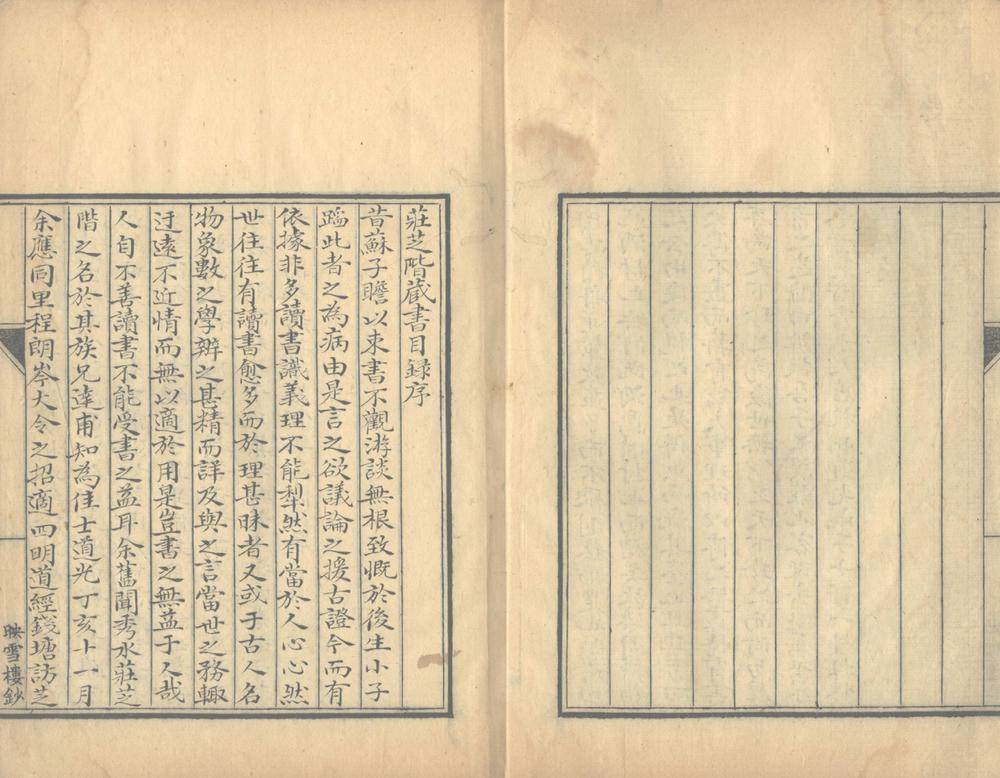 莊芝階藏書目録序
昔蘇子瞻以束書不觀游談無根致慨於後生小子
蹈此者之為病由是言之欲議論之援古證今而有
依據非多讀書識義理不能犁然有當於人心心然
世往往有讀書愈多而於理甚昧者又或于古人名
物象數之學辨之甚精而詳及與之言當世之務輙
迂遠不近情而無以適於用是豈書之無益于人哉
人自不善讀書不能受書之益耳余舊聞秀水莊芝
階之名於其族兄達甫知為佳士道光丁亥十一月
余應同里程朗岑大令之招適四明道經錢塘訪芝
映雪樓鈔